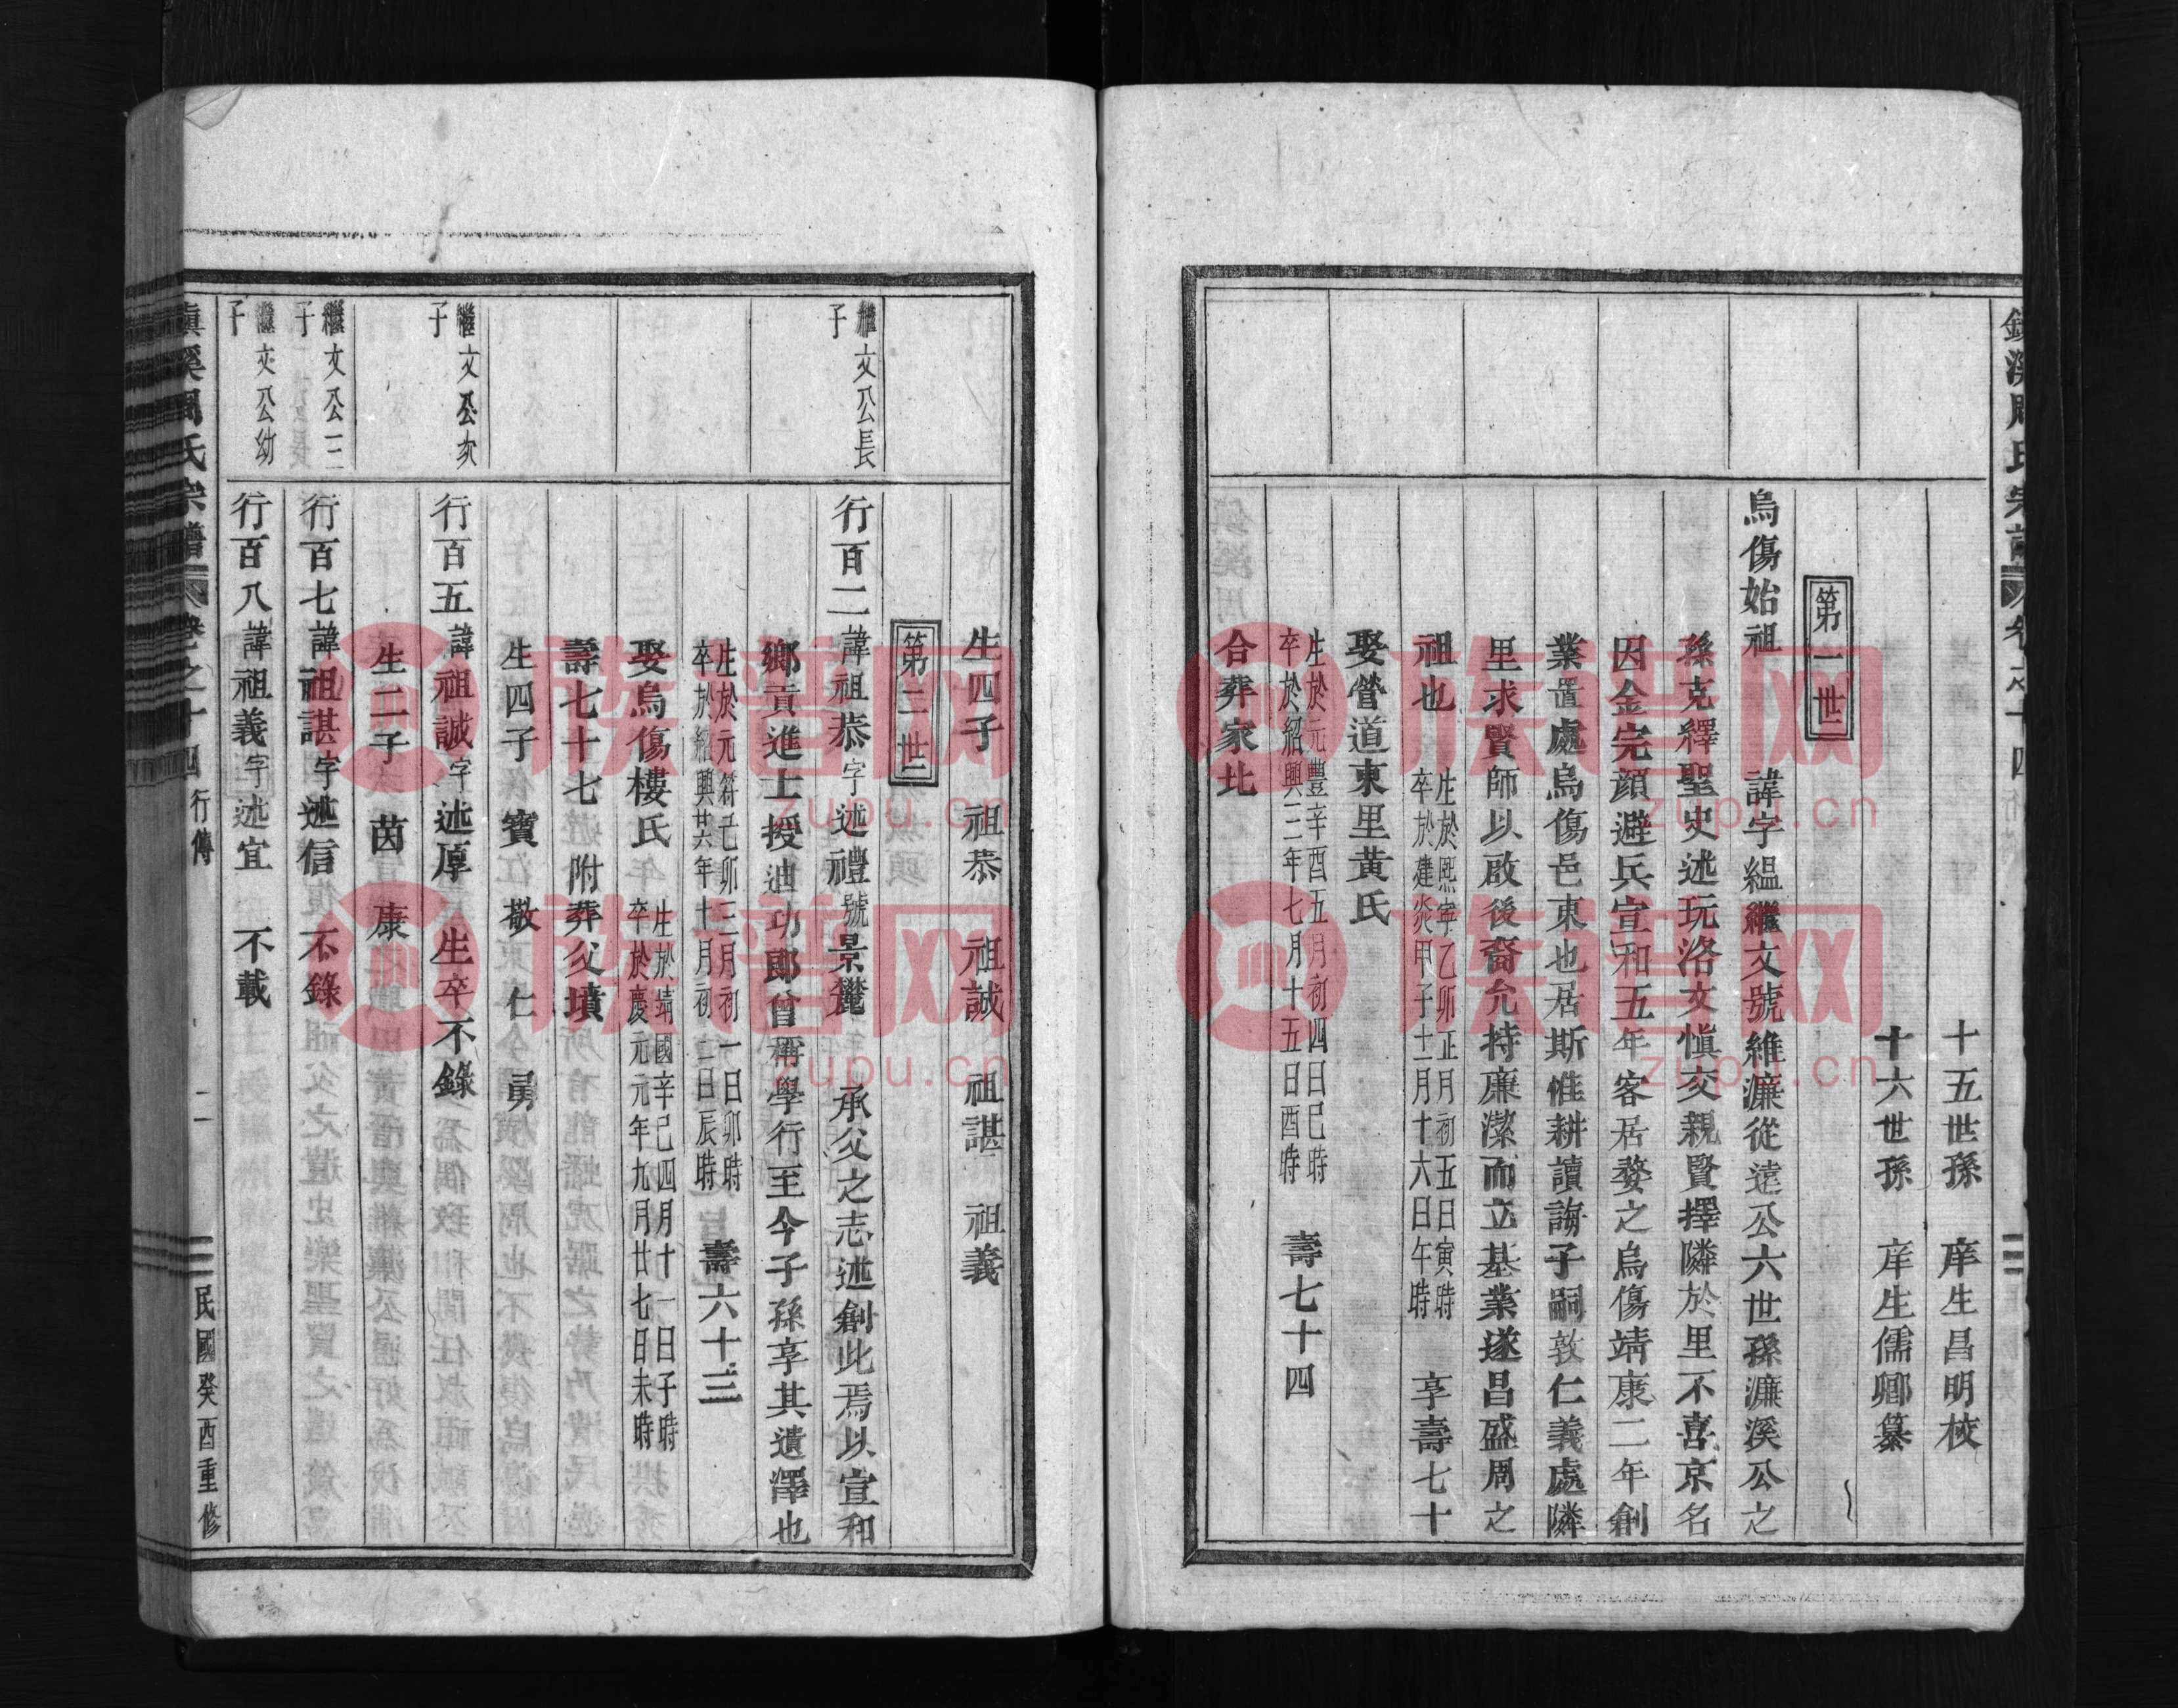 十五世孫 庠生昌明校
十六世孫 庠生儒卿纂
第一世
烏傷始祖 諱字縕繼文號維濂從遠公六世孫濂溪公之
孫克繹聖史述玩洛文慎交親賢擇隣於里不喜京名
因金完顏避兵宣和五年客居婺之烏傷靖康二年創
業置處烏傷邑東也居斯惟耕讀誨子嗣敦仁義處隣
里求賢師以啟後裔允持廉潔而立基業遂昌盛周之
祖也 生於熙寧乙卯正月初五日寅時
卒於建炎甲子十一月十六日午時 享壽七十
娶營道東里黃氏
生於元豐辛酉五月初四日巳時
卒於紹興二年七月十五日酉時 壽七十四
合葬家北
生四子 祖恭 祖誠 祖諶 祖義
第二世
繼文公長
子
行百二諱祖恭字述禮號景 承父之志述創此焉以宣和
鄉貢進士授迪功郎曾稱學行至今子孫享其遺澤也
生於元符己卯三月初一日卯時
卒於紹興廿六年十月初二日辰時 壽六十三
娶烏傷樓氏 生於靖國辛巳四月十一日子時
卒於慶元元年九月廿七日未時
壽七十七 附葬父墳
生四子 寶 敬 仁 勇
繼文公次
子
行百五諱祖誠字述厚 生卒不錄
生二子 茵 康
繼文公三
子
行百七諱祖諶字述信 不錄
繼文公幼
子
行百八諱祖義字述宜 不載
溪周氏宗譜 卷之十四 行傳 二 民國癸酉重修
族譜网
zupu.cn
族譜网
zupu.cn
族譜网
zupu.cn
族譜网
zupu.cn